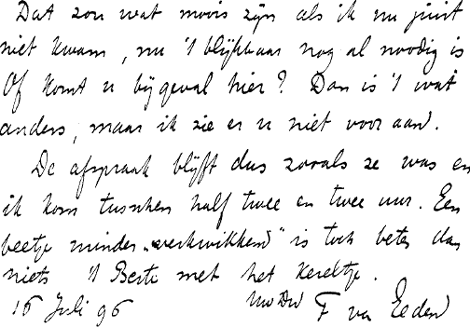 Dat zou wat moois zijn als ik nu juist
niet kwam, nu 't blijkbaar nog al noodig is
Of komt u bijgeval hier? Dan is 't wat
anders, maar ik zie er u niet voor aan.
De afspraak blijft dus zooals ze was en
ik kom tusschen half twee en twee uur. Een
beetje minder „verkwikkend" is toch beter dan
niets 't Beste met het kereltje.
15 Juli 96 F van Eeden